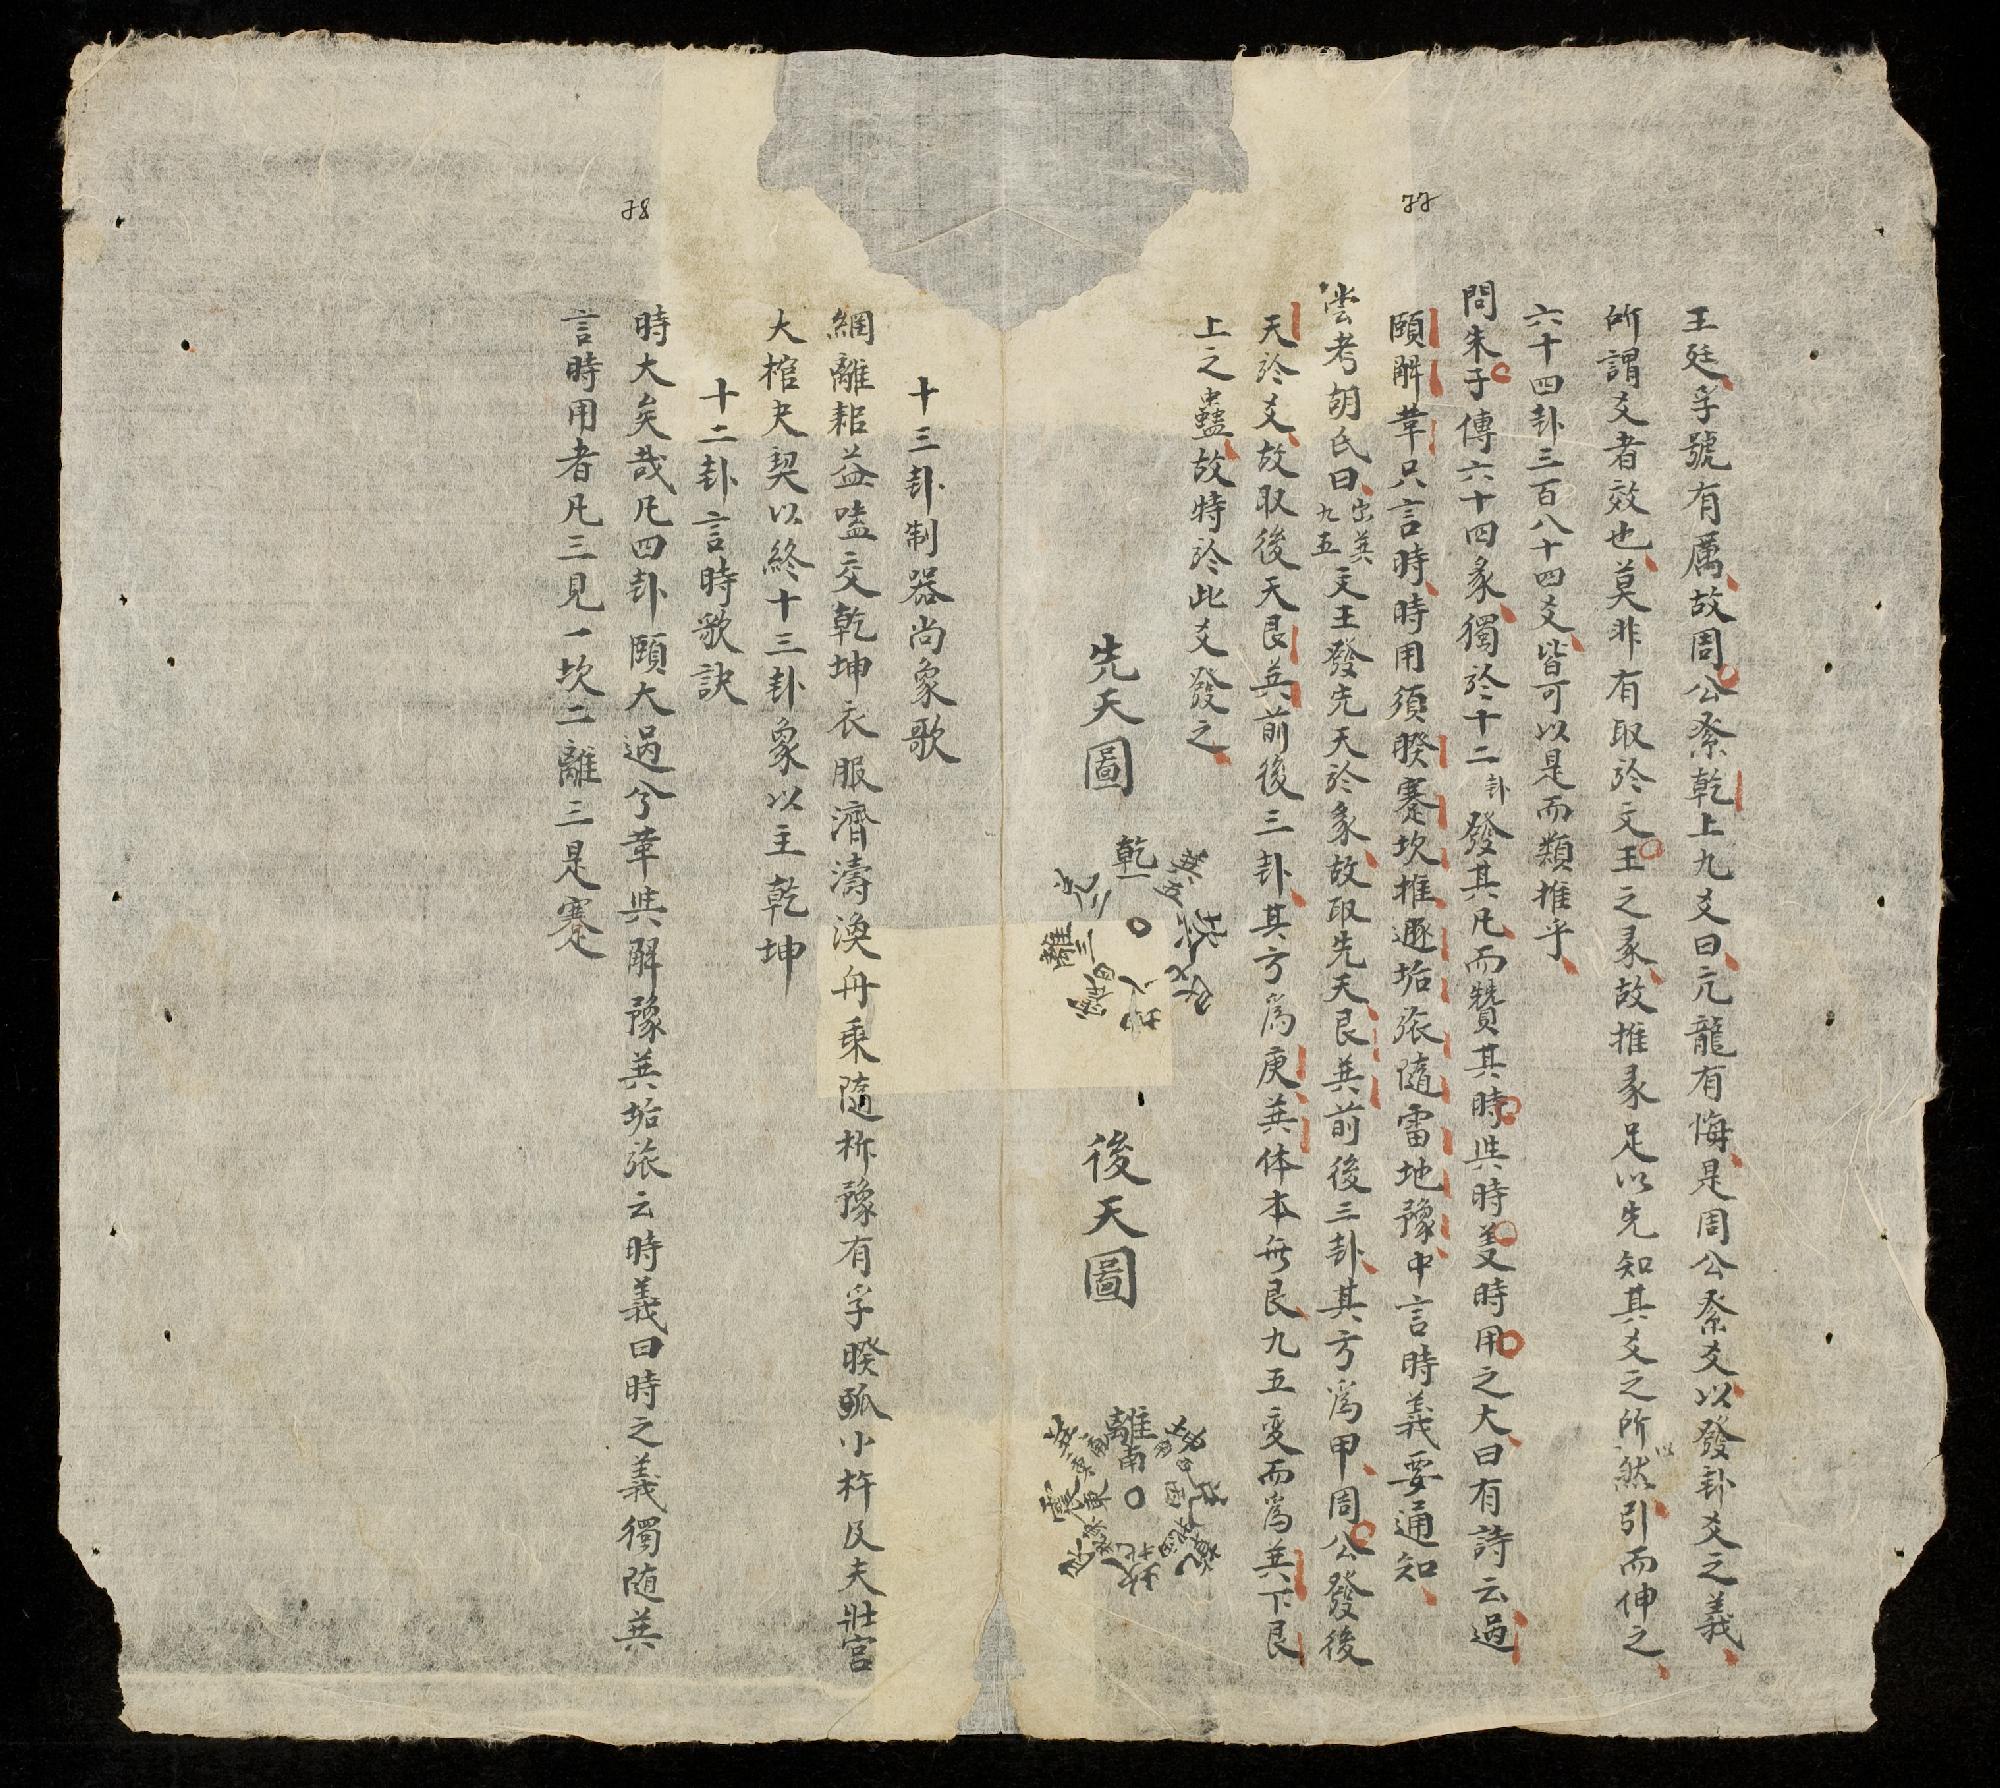 77
王廷孚號有厲故周公系乾上九爻曰亢龍有悔是周公系爻以發卦爻之義
所謂爻者效也莫非有取於文王之彖故推彖足以先知其爻之所以然引而伸之
六十四卦三百八十四爻皆可以是而類推乎
問朱子傳六十四彖獨於十二卦發其凡而贊其時與時義時用之大曰有詩云過
頤解革只言時時用須睽蹇坎推遯姤旅隨雷地豫中言時義要通知
嘗考胡氏曰出巽九五文王發先天於彖故取先天艮巽前後三卦其方為甲周公發後
天於爻故取後天艮巽前後三卦其方為庚巽体本無艮九五变而為巽下艮
上之蠱故特於此爻發之
先天圖
乾一
兌二
離三
震四
巽五
坎六
艮七
坤八
後天圖
離南
坤西南
兌西
乾西北
坎北
艮東北
震東
巽東南
78
十三卦制器尚象歌
網離耜益嗑交乾坤衣服濟濤渙舟乘隨柝豫有孚睽弧小杵及夫壯宮
大棺夬契以終十三卦象以主乾坤
十二卦言時歌訣
時大矣哉凡四卦頤大過兮革與解豫巽姤旅云時義曰時之義獨随巽
言時用者凡三見一坎二離三是蹇